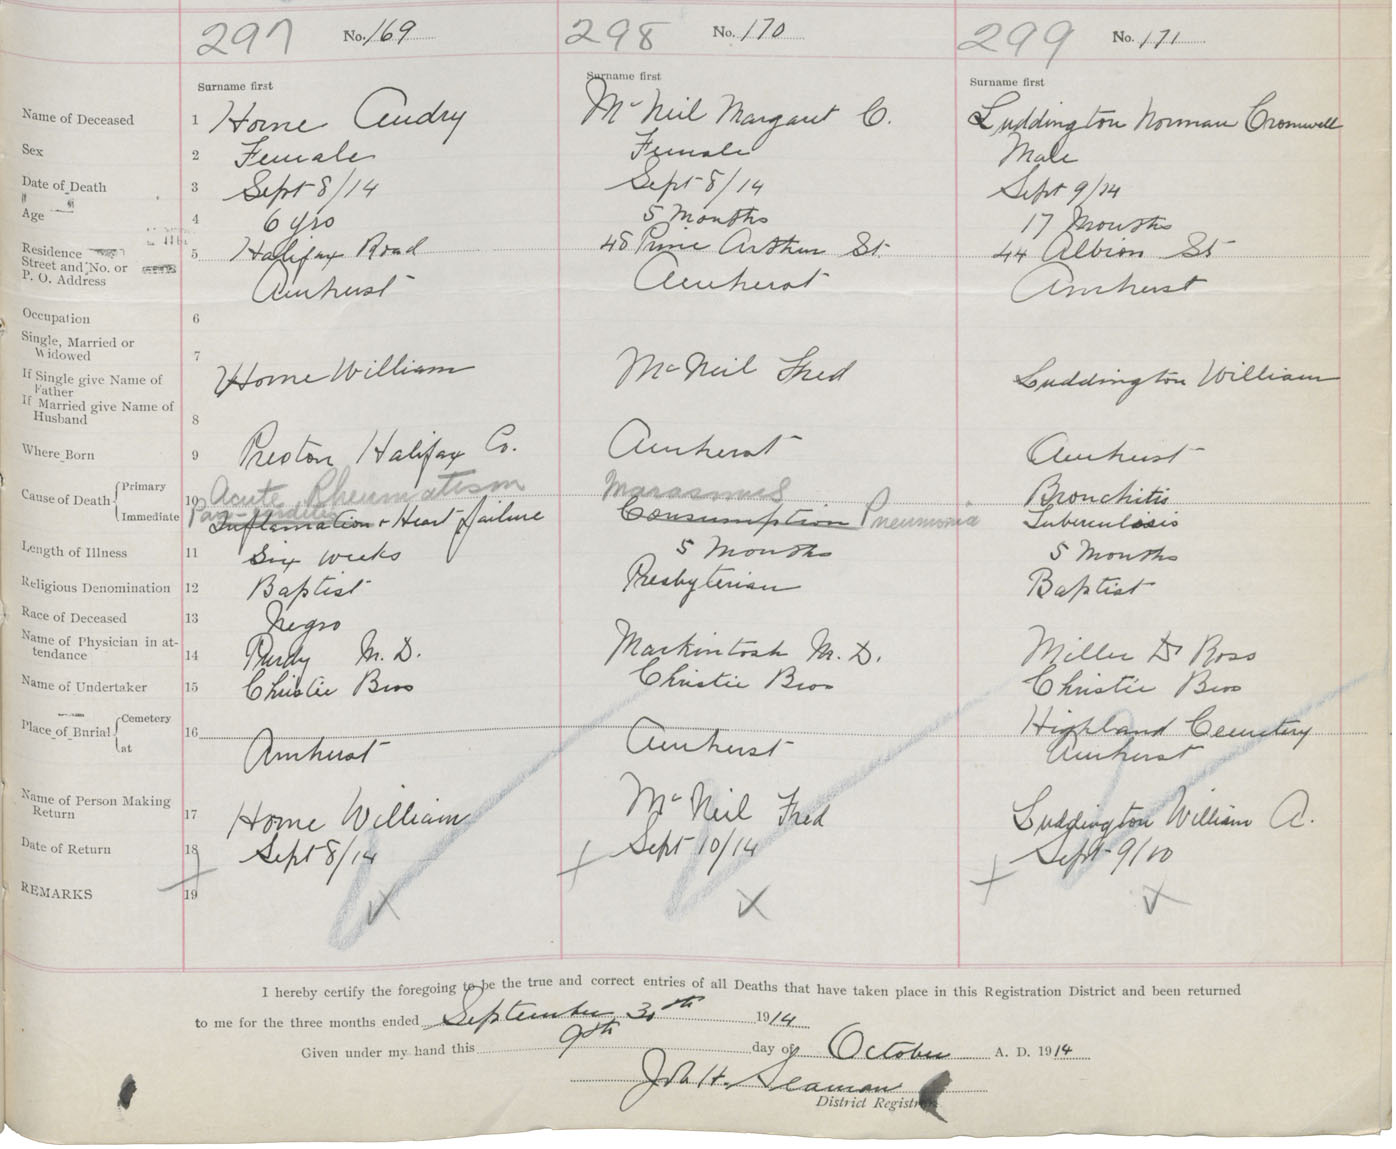 297 No. 169 298 No. 170 299 No. 171
Surname first Surname first Surname first
Name of Deceased 1 Horne Audry McNeil Margaret C. Luddington Norman Cromwell
Sex 2 Female Female Male
Date of Death 3 Sept 8/14 Sept 8/14 Sept 9/14
Age 4 6 yrs 5 Months 17 Months
Residence 5 Halifax Road 48 Princ Arthur St. 44 Albion St
Street and No. or
P. O. Address Amherst Amherst Amherst
Occupation 6
Single, Married or
Widowed 7
If Single give Name of
Father Horne William McNeil Fred Luddington William
If Married give Name of
Husband 8
Where Born 9 Preston Halifax Co. Amherst Amherst
Cause of Death Primary 10 Acute Rheumatism Marasmus Bronchitis
Immediate Inflamation + Heart failure Consumption Pneumonia Tuberculosis
Length of Illness 11 Six weeks 5 Months 5 Months
Religious Denomination 12 Baptist Presbyterian Baptist
Race of Deceased 13 Negro
Name of Physician in at-
tendance 14 Purdy M. D. Mackintosh M. D. Miller Dr Ross
Name of Undertaker 15 Christie Bros Christie Bros Christie Bros
Place of Burial Cemetery 16 Highland Cemetery
at Amherst Amherst Amherst
Name of Person Making
Return 17 Horne William McNeil Fred Luddington William A.
Date of Return 18 Sept 8/14 Sept 10/14 Sept 9/10
REMARKS 19
I hereby certify the foregoing to be the true and correct entries of all Deaths that have taken place in this Registration District and been returned
to me for the three months ended September 30th 1914
Given under my hand this 9th day of October A. D. 1914
Seaman
District Registrar